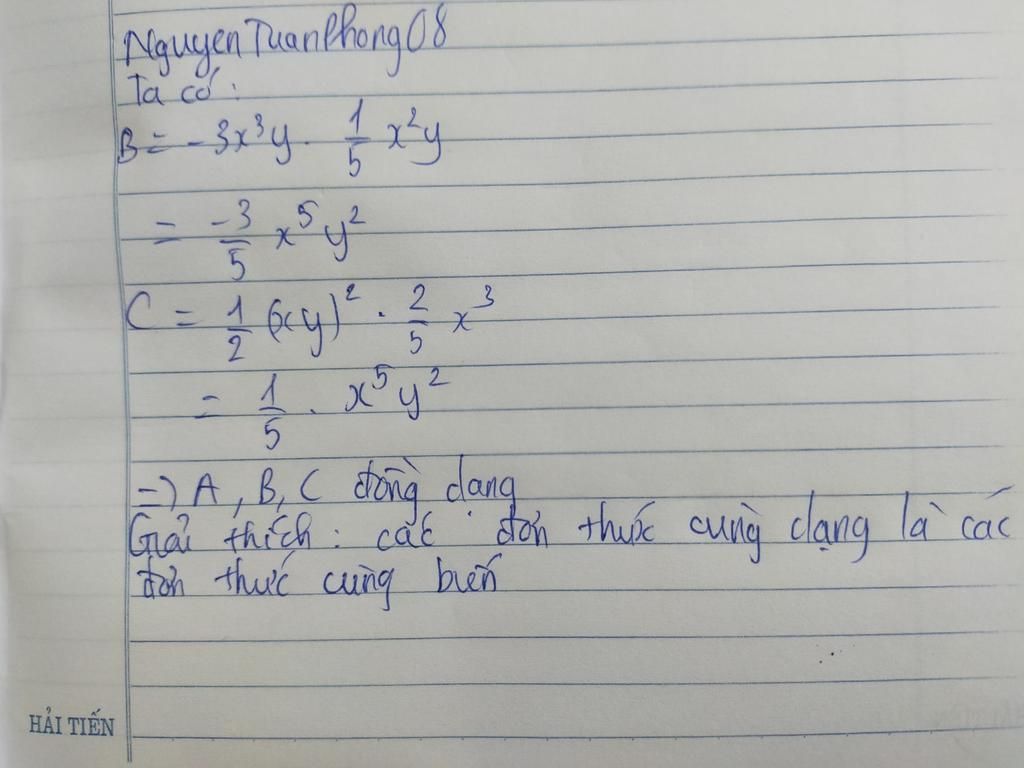 NguyenTuanPhong08
Ta có:
B = -3x³y . 1/5 x²y
= -3/5 x⁵y²
C = 1/2 (xy)² . 2/5 x³
= 1/5 . x⁵y²
=> A, B, C đồng dạng
Giải thích: các đơn thức cùng dạng là các
đơn thức cùng biến
HẢI TIẾN